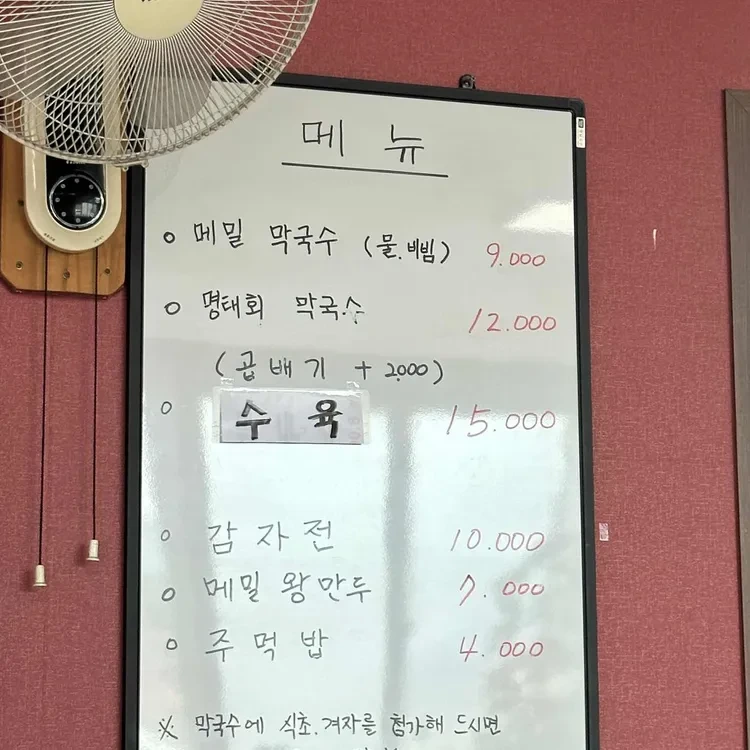 메 뉴
o 메밀 막국수 (물.비빔) 9.000
o 명태회 막국수 12.000
(곱배기 + 2000)
o 수 육 15.000
o 감자전 10.000
o 메밀 왕만두 7.000
o 주먹밥 4.000
※ 막국수에 식초.겨자를 첨가해 드시면